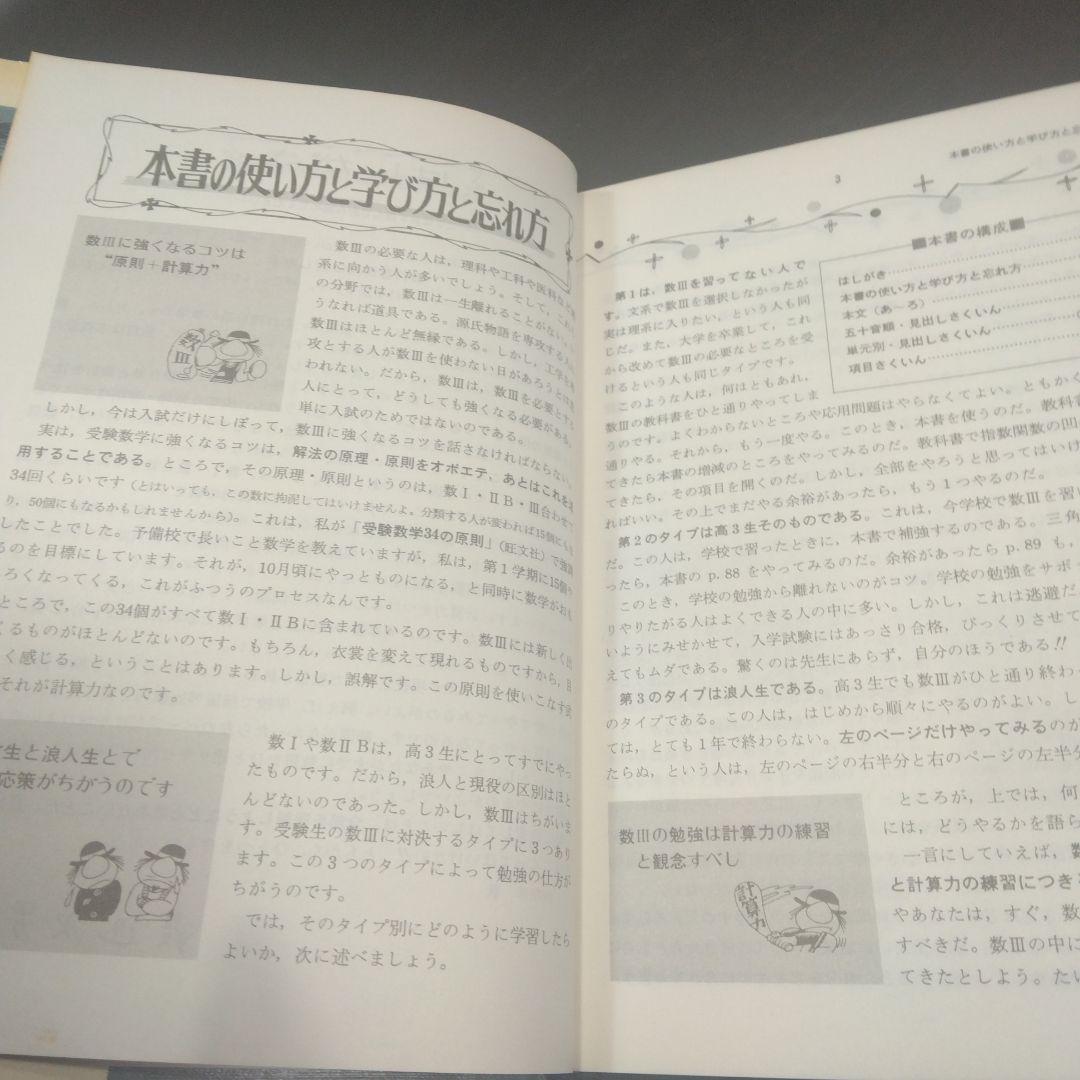 本書の使い方と学び方と忘れ方
数Ⅲに強くなるコツは
“原則＋計算力”
数Ⅲ
数Ⅲの必要な人は，理科や工科や医科など
系に向かう人が多いでしょう。そして，これ
の分野では，数Ⅲは一生離れることがない
うなれば道具である。源氏物語を専攻する人
数Ⅲはほとんど無縁である。しかし，工学を
攻とする人が数Ⅲを使わない日があろうとは
われない。だから，数Ⅲは，数Ⅲを必要とする
人にとって，どうしても強くなる必要がある。
単に入試のためではないのである。
しかし，今は入試だけにしぼって，数Ⅲに強くなるコツを話さなければならない。
実は，受験数学に強くなるコツは，解法の原理・原則をオボエテ，あとはこれを
用することである。ところで，その原理・原則というのは，数Ⅰ・ⅡB・Ⅲ合わせて
34回くらいです（とはいっても，この数に拘泥してはいけませんよ。分類する人が変われば15個にも
り，50個にもなるかもしれませんから）。これは，私が「受験数学34の原則」（旺文社）で
したことでした。予備校で長いこと数学を教えていますが，私は，第1学期に15個
るのを目標にしています。それが，10月頃にやっとものになる，と同時に数学がおも
ろくなってくる，これがふつうのプロセスなんです。
ところで，この34個がすべて数Ⅰ・ⅡBに含まれているのです。数Ⅲには新しく
くるものがほとんどないのです。もちろん，衣裳を変えて現れるものですから，
く感じる，ということはあります。しかし，誤解です。この原則を使いこなす
それが計算力なのです。
生と浪人生とで
応策がちがうのです
数Ⅰや数ⅡBは，高3生にとってすでにやっ
たものです。だから，浪人と現役の区別はほと
んどないのであった。しかし，数Ⅲはちがいま
す。受験生の数Ⅲに対決するタイプに3つあり
ます。この3つのタイプによって勉強の仕方が
ちがうのです。
では，そのタイプ別にどのように学習したら
よいか，次に述べましょう。
3
本書の使い方と学び方と忘
第1は，数Ⅲを習ってない人で
す。文系で数Ⅲを選択しなかったが
実は理系に入りたい，という人も同
じだ。また，大学を卒業して，これ
から改めて数Ⅲの必要なところを受
けるという人も同じタイプです。
このような人は，何はともあれ，
■本書の構成■
はしがき
本書の使い方と学び方と忘れ方
本文（あ〜ろ）
五十音順・見出しさくいん
単元別・見出しさくいん
項目さくいん
数Ⅲの教科書をひと通りやってしま
うのです。よくわからないところや応用問題はやらなくてよい。ともかく
通りやる。それから，もう一度やる。このとき，本書を使うのだ。教科書
できたら本書の増減のところをやってみるのだ。教科書で指数関数の凹凸
てきたら，その項目を開くのだ。しかし，全部をやろうと思ってはいけ
ればいい。その上でまだやる余裕があったら，もう1つやるのだ。
第2のタイプは高3生そのものである。これは，今学校で数Ⅲを習
だ。この人は，学校で習ったときに，本書で補強するのである。三角
ったら，本書の p.88 をやってみるのだ。余裕があったら p.89 も，
このとき，学校の勉強から離れないのがコツ。学校の勉強をサボ
りやりたがる人はよくできる人の中に多い。しかし，これは逃避だ
いようにみせかけて，入学試験にはあっさり合格，びっくりさせて
えてもムダである。驚くのは先生にあらず，自分のほうである!!
第3のタイプは浪人生である。高3生でも数Ⅲがひと通り終わっ
のタイプである。この人は，はじめから順々にやるのがよい。し
ては，とても1年で終わらない。左のページだけやってみるのが
たらぬ，という人は，左のページの右半分と右のページの左半分
数Ⅲの勉強は計算力の練習
と観念すべし
計算力
ところが，上では，何
には，どうやるかを語ら
一言にしていえば，数
と計算力の練習につきる
やあなたは，すぐ，数
すべきだ。数Ⅲの中に
てきたとしよう。たい